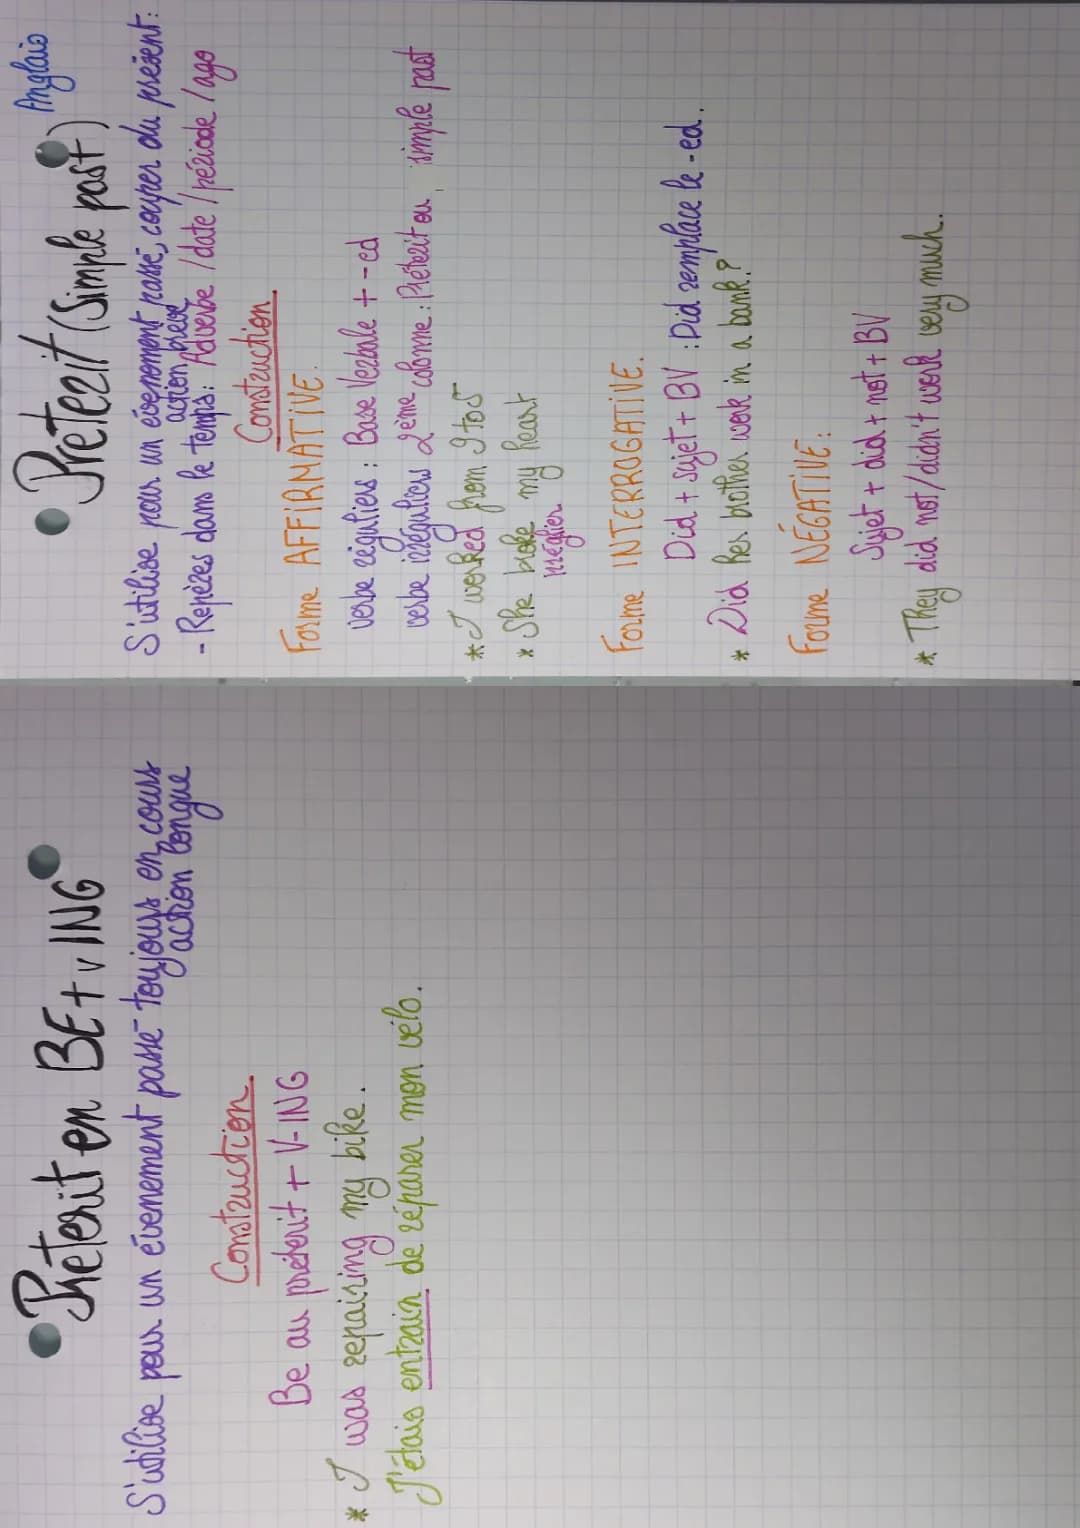 Anglais
Prétérit (Simple past)
S'utilise pour un évenement passé, couper du présent:
action brève
- Repères dans le temps: Adverbe / date / période / ago
Construction.
Forme AFFIRMATIVE.
verbe réguliers: Base Verbale + -ed
verbe irréguliers 2ème colonne: Prétérit ou, simple past
* I worked from 9 to 5
* She broke my heart
irrégulier
Forme INTERROGATIVE.
Did + sujet + BV : Did remplace le -ed.
* Did her brother work in a bank?
Forme NÉGATIVE:
Sujet + did + not + BV
* They did not / didn't work very much.
Préterit en BE + v ING
S'utilise pour un évenement passé toujours en cours
action longue
Construction.
Be au préterit + V-ING
* I was repairing my bike.
J'étais entrain de réparer mon vélo.